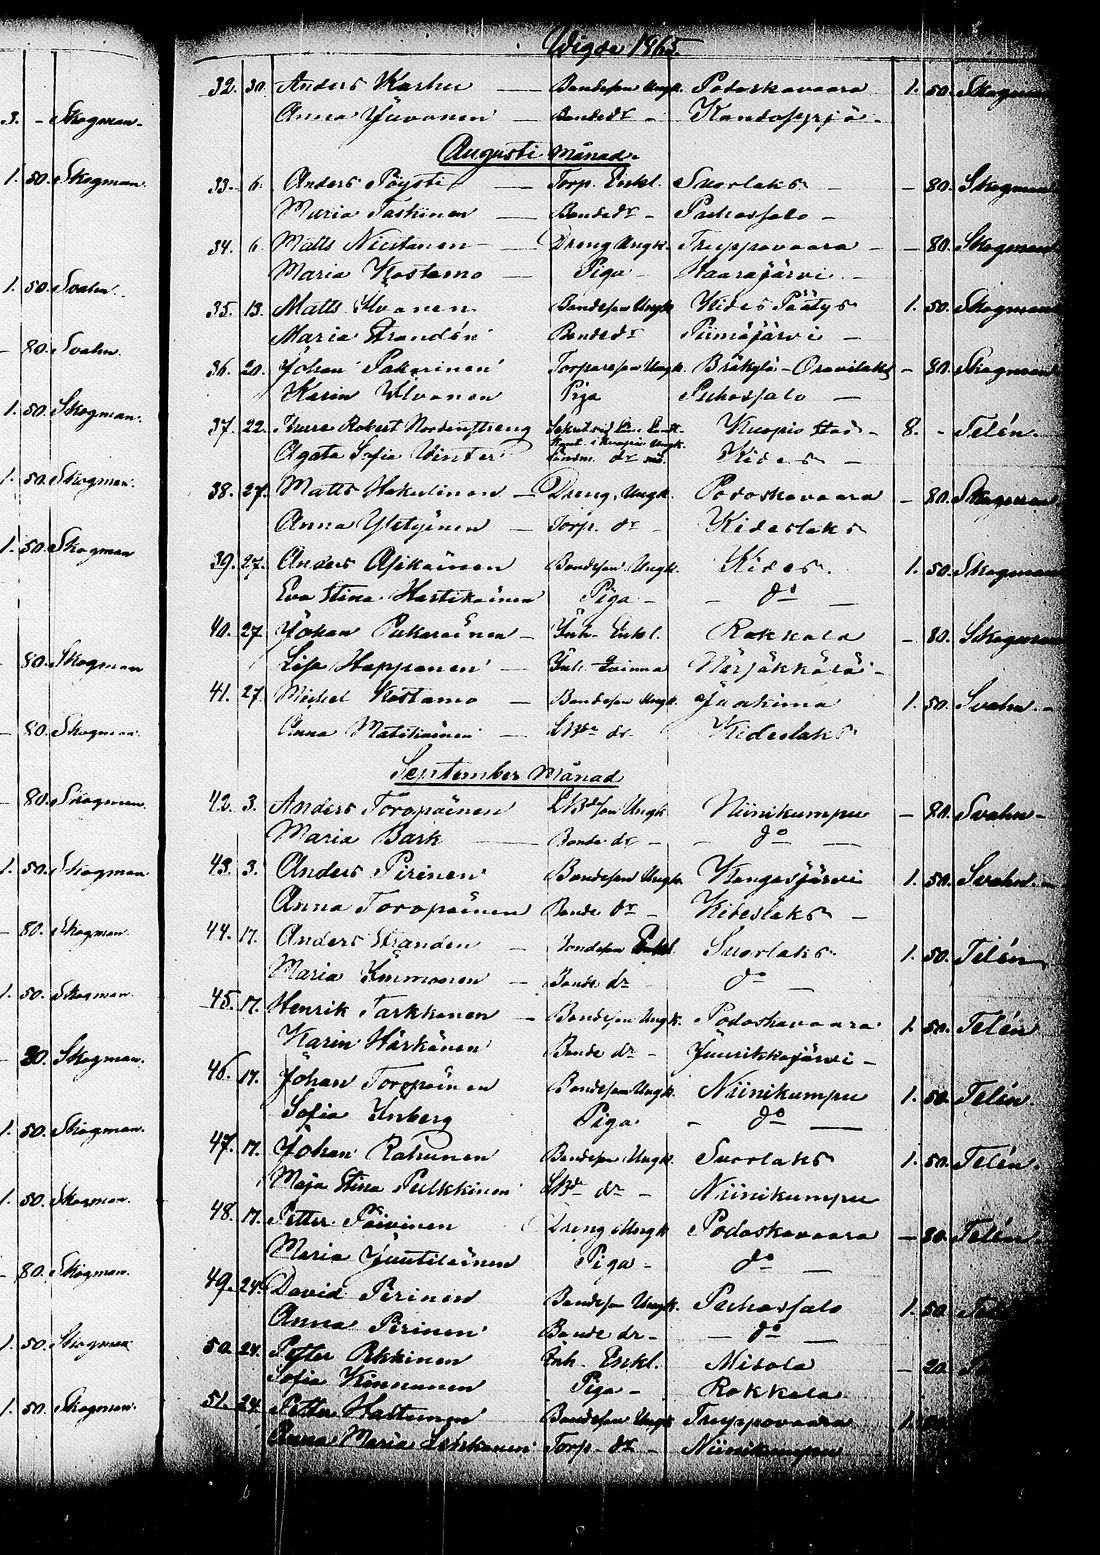 Wigde 1865.
32. 30. Anders Karhu — Bondeson Ungk. Potoskavaara 1. 50. Skogman
Anna Juvonen — Bonde dr -
Augusti Månad.
33. 6. Anders Pöysti — Torp. Enkl. Suorlaks - 80. Skogman
Maria Taskinen — Bonde dr - Puhossalo -
34. 6. Matts Nuutanen - Dreng Ungk. Truppovaara - 80. Skogman
Maria Kostamo — Piga - Haarajärvi -
35. 13. Matts Ilvonen Bondeson Ungk. Kides Päätys 1. 50. Skogman
Maria Strandén Bonde dr Piimäjärvi -
36. 20. Johan Pakarinen Torpareson Ungk. Bräkylä - Oravilaks - 80. Skogman
Karin Ilvonen Piga Puhossalo —
37. 22. Robert Nordenstreng Kuopio stad - 8. - Telén
Agata Sofia Winter Kides -
38. 27. Matts Hakulinen - Dreng, Ungk. Potoskavaara - 80. Skogman
Anna Yletyinen - Torp. dr - Kideslaks
39. 27. Anders Asikainen Bondeson Ungk. Kides. 1. 50. Skogman
Eva Stina Hartikainen Piga - - do —
40. 27. Johan Pukarainen - Inh. Enkl. Rokkala - 80. Skogman
Lisa Happonen — Inh. Qvinna Närsäkkälä -
41. 27. Michel Kostamo - Bondeson Ungk. Juokima 1. 50. Svahn -
Anna Matikainen — Kideslaks
September Månad
42. 3. Anders Toropainen Ungk. Niinikumpu - 80. Svahn -
Maria Bark — Bonde dr - - do -
43. 3. Anders Pirinen Bondeson Ungk. Kangasjärvi 1. 50. Svahn -
Anna Toropainen Bonde dr - Kideslaks -
44. 17. Anders Stranden - Bondeson Enkl. Suorlaks 1. 50. Telén
Maria Immonen - Bonde dr do —
45. 17. Henrik Tarkkonen - Bondeson Ungk. Potoskavaara 1. 50. Telén
Karin Härkönen Bonde dr - Juurikkajärvi -
46. 17. Johan Toropainen Bondeson Ungk. Niinikumpu 1. 50. Telén.
Sofia Enberg Piga - do —
47. 17. Johan Rahunen Bondeson Ungk. Suorlaks 1. 50. Telén.
Maja Stina Pulkkinen dr - Niinikumpu
48. 17. Petter Päivinen Dreng Ungk Potoskavaara - 80. Telén.
Maria Juutilainen Piga - do —
49. 24. David Pirinen Bondeson Ungk. Puhossalo 1. 50.
Anna Pirinen Bonde dr - - do —
50. 24. Petter Inh. Enkl. Misola
Sofia Kinnunen Piga - Rokkala
51. 24. Petter Bondeson Ungk. Truppovaara 1.
Anna Maria Torp. dr - Niinikumpu
3. - Skogman -
1. 50. Skogman.
1. 50. Svahn.
- 80. Svahn.
1. 50. Skogman.
1. 50. Skogman.
1. 50. Skogman
- 80. Skogman
- 80. Skogman.
- 80. Skogman.
1. 50. Skogman
- 80. Skogman.
1. 50. Skogman.
Skogman.
1. 50. Skogman.
1. 50. Skogman.
- 80. Skogman.
1. 50. Skogman
1. 50. Skogman.